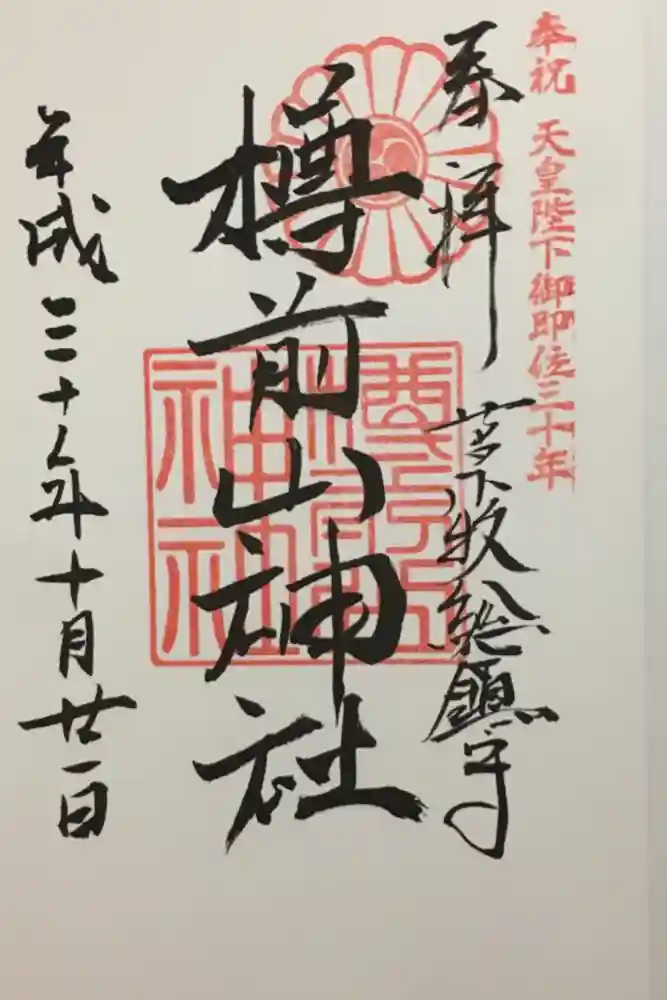 奉祝 天皇陛下御即位三十年
奉拝
苫小牧総鎮守
樽前山神社
平成三十年十月廿一日